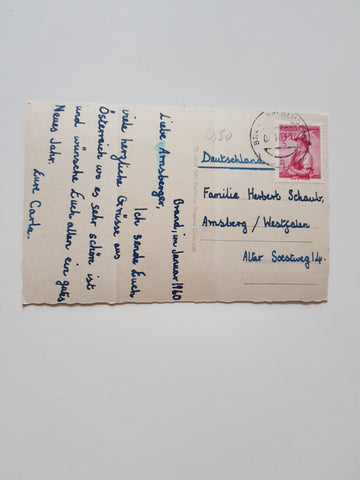 Brand, im Januar 1960
Liebe Arnsberger,
Ich sende Euch
viele herzliche Grüsse aus
Österreich wo es sehr schön ist
und wünsche Euch allen ein gutes
Neues Jahr.
Eure Carla.
0,50
Deutschland
Familie Herbert Schaub,
Arnsberg / Westfalen
Alter Soestweg 14.